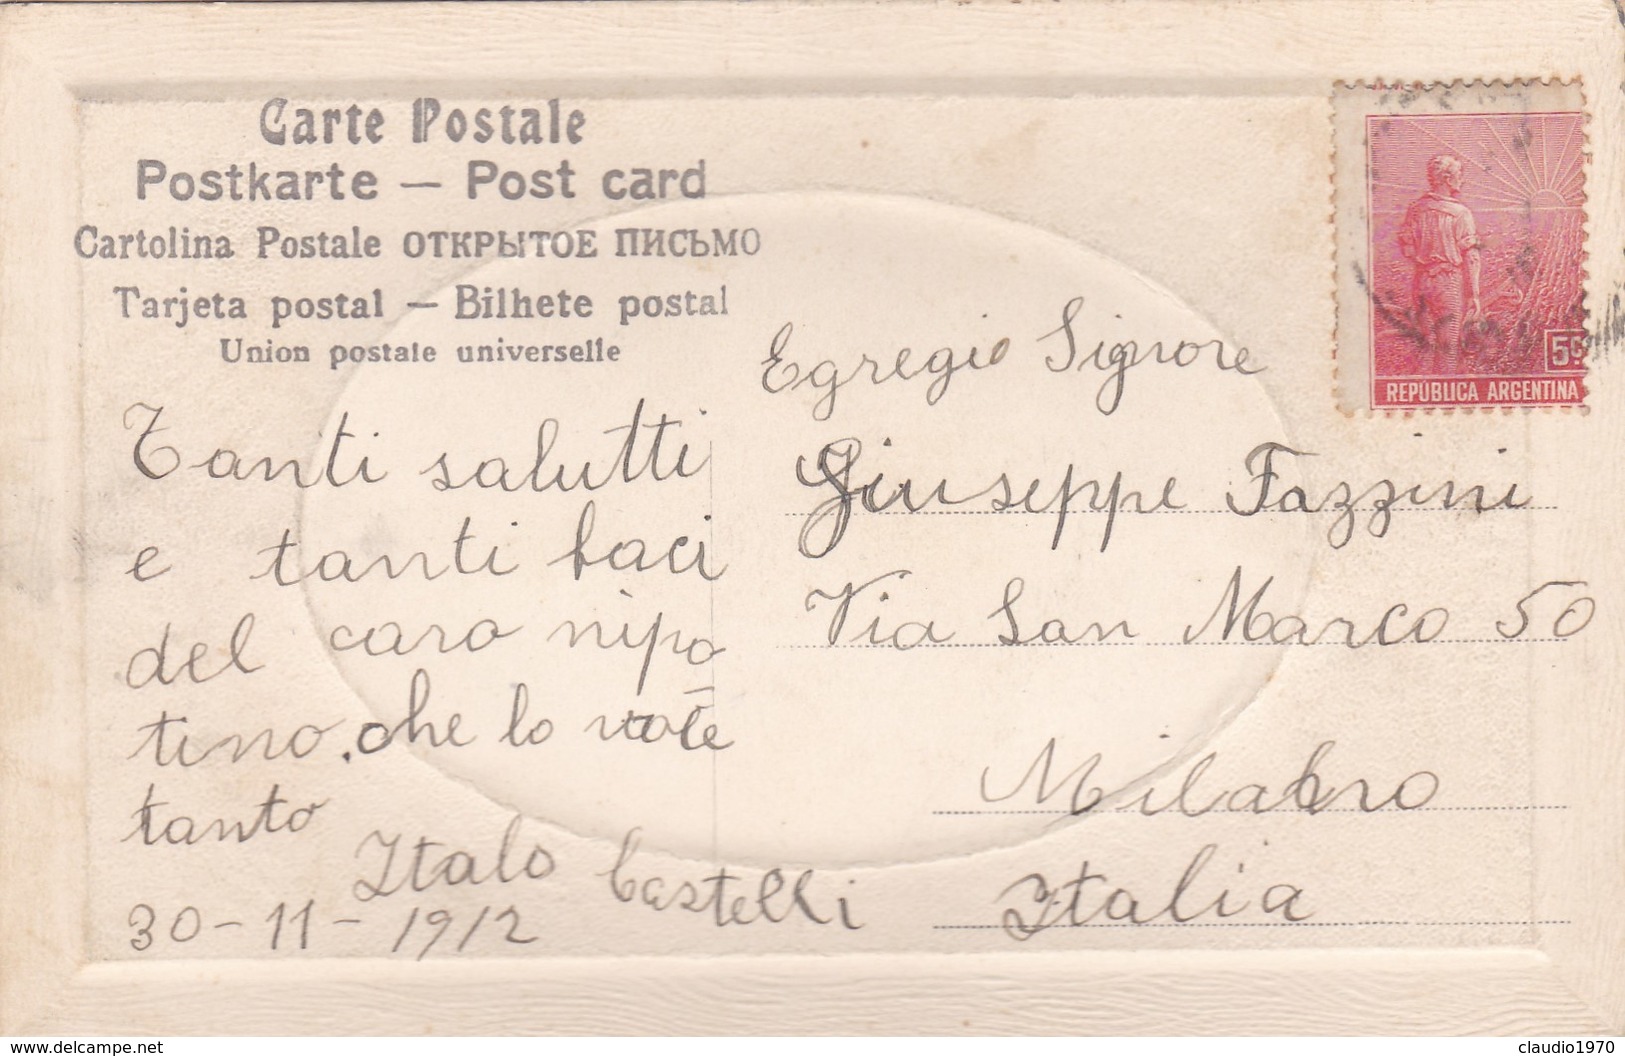 Carte Postale
Postkarte — Post card
Cartolina Postale ОТКРЫТОЕ ПИСЬМО
Tarjeta postal — Bilhete postal
Union postale universelle
Tanti salutti
e tanti baci
del caro nipo
tino. che lo
tanto
Italo Castelli
30-11-1912
5c
REPÚBLICA ARGENTINA
Egregio Signore
Giuseppe Fazzini
Via San Marco 50
Milano
Italia
www.delcampe.net
claudio1970